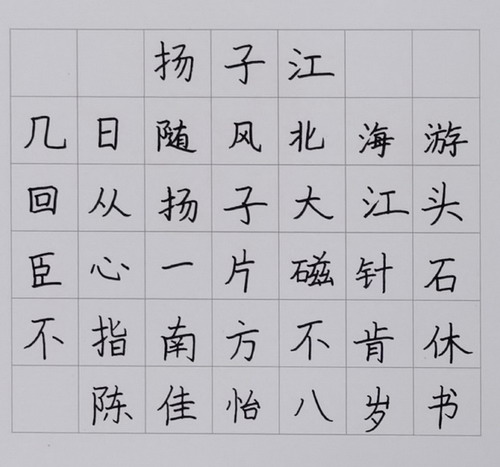 扬子江
几日随风北海游
回从扬子大江头
臣心一片磁针石
不指南方不肯休
陈佳怡八岁书